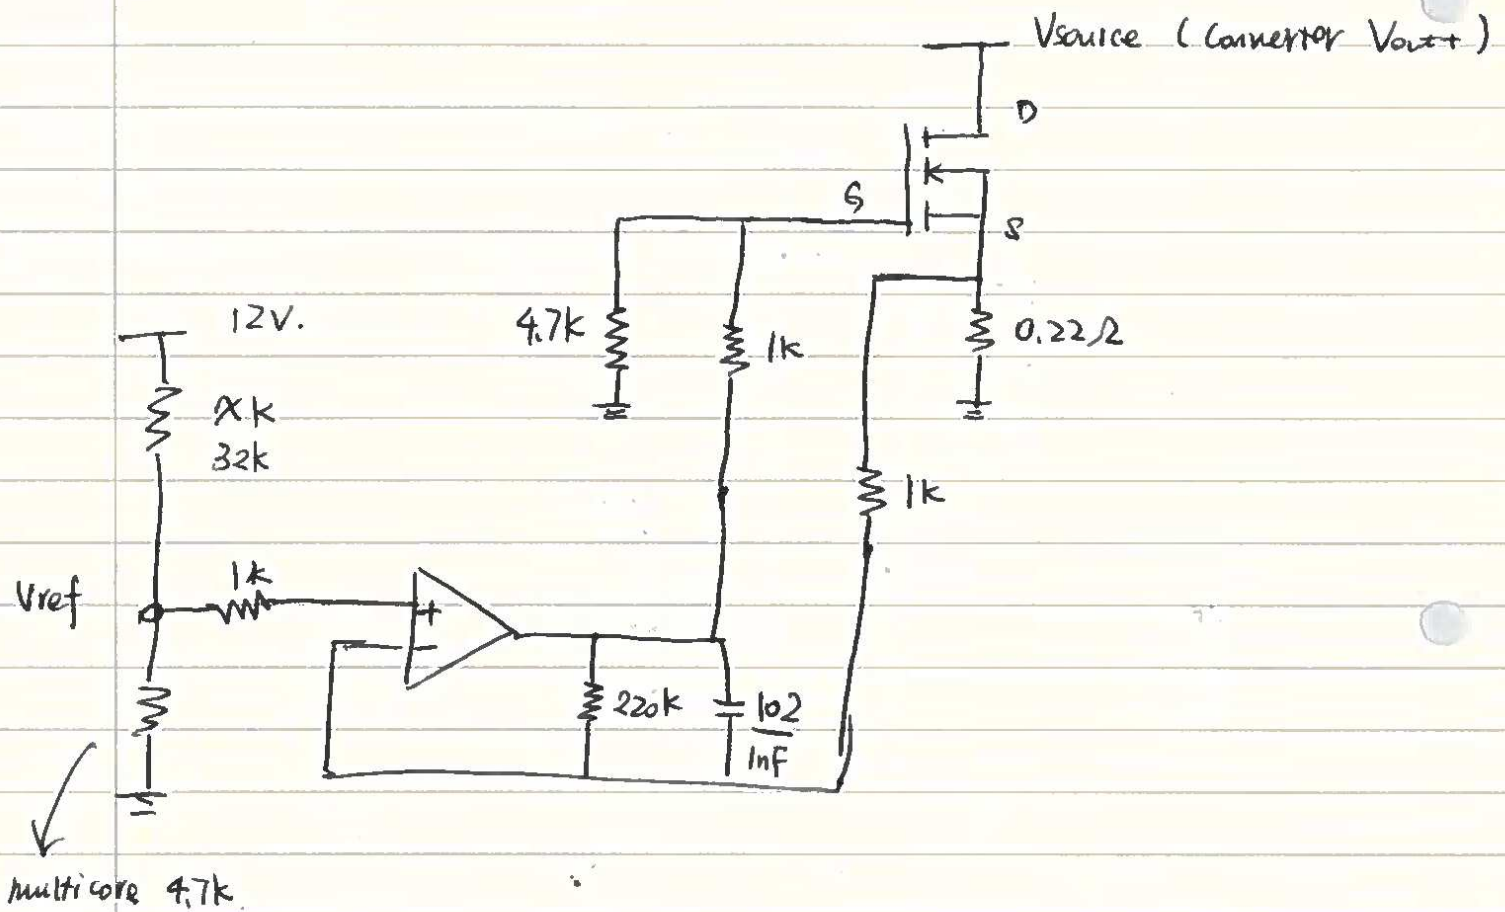 Vsource (Converter Vout+)
D
G
S
12V.
4.7k
1k
0.22Ω
xk
32k
1k
1k
Vref
+
−
220k
102
1nF
multicore 4.7k